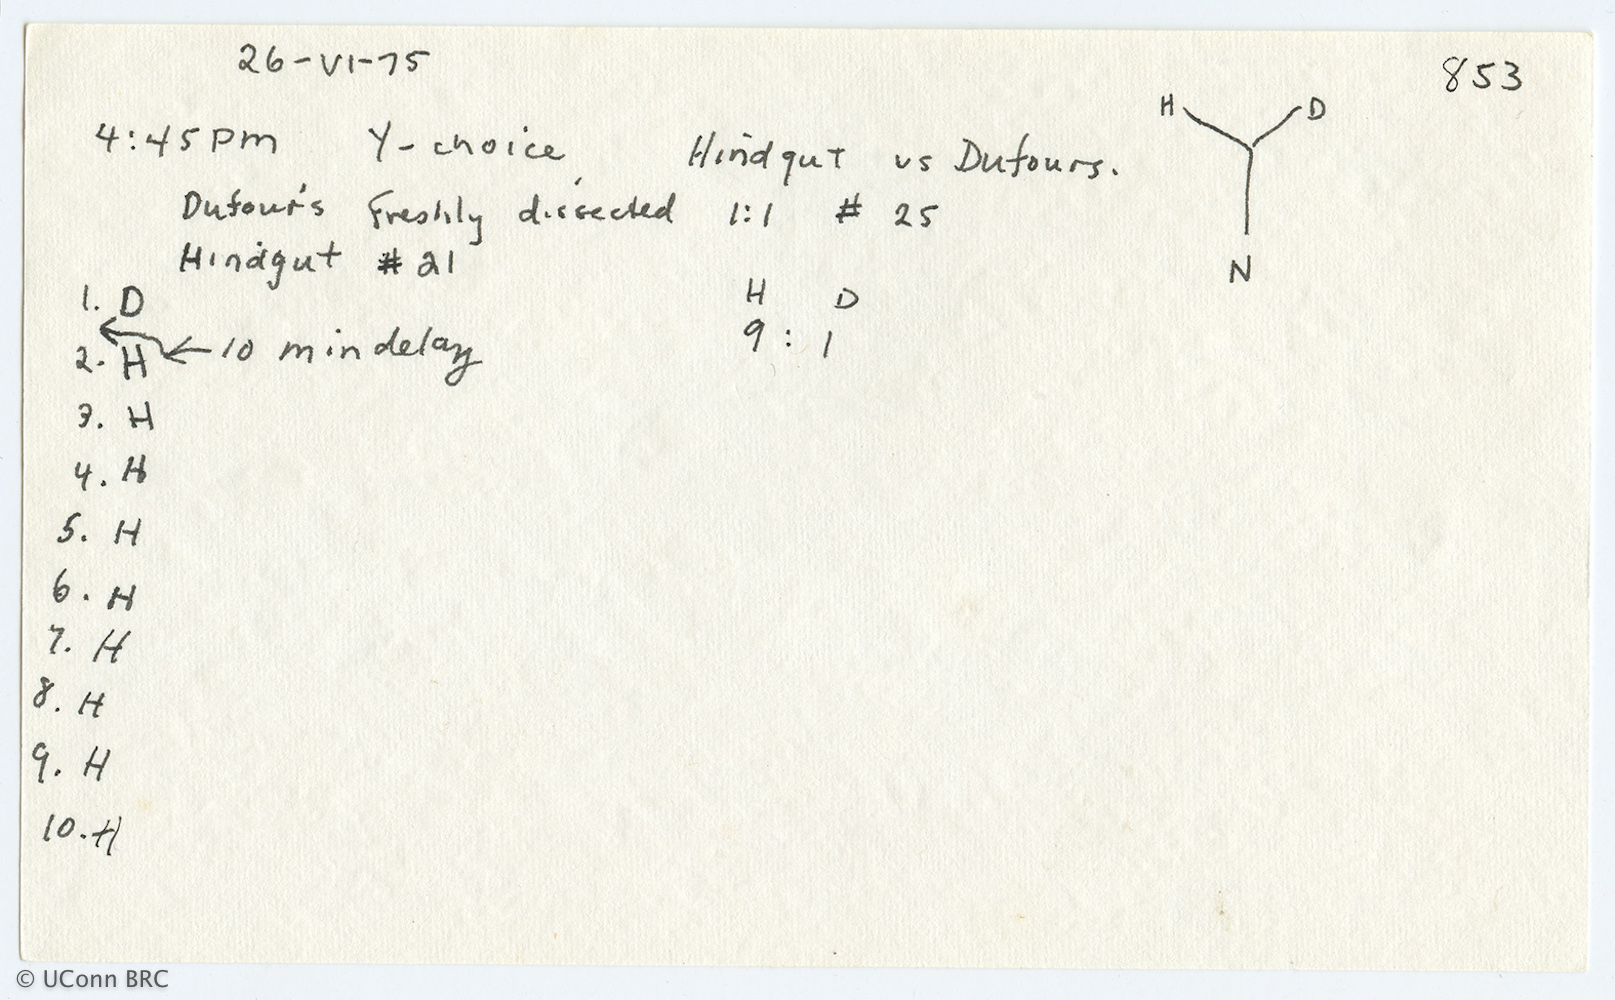 26-VI-75
853
4:45pm Y-choice Hindgut vs Dufours.
H D
Dufour's freshly dissected 1:1 # 25
Hindgut # 21
N
1. D
H D
9 : 1
← 10 min delay
2. H
3. H
4. H
5. H
6. H
7. H
8. H
9. H
10. H
© UConn BRC